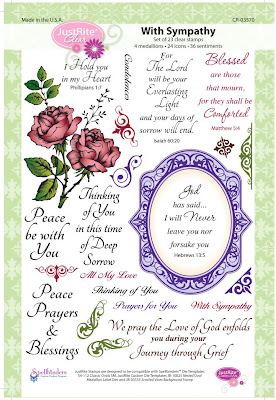 Made in the U.S.A.
CR-03570
JustRite
Clear
With Sympathy
Set of 23 clear stamps
4 medallions • 24 icons • 36 sentiments
I Hold you
in my Heart
Phillipians 1:7
Condolences
For
The Lord
will be your
Everlasting
Light
and your days of
sorrow will end.
Isaiah 60:20
Blessed
are those
that mourn,
for they shall be
Comforted
Matthew 5:4
Peace
be with
You
Thinking
of You
in this time
of Deep
Sorrow
God
has said...
I will Never
leave you nor
forsake you
Hebrews 13:5
All My Love
Thinking of You
Peace
Prayers
&
Blessings
Prayers for You
With Sympathy
We pray the Love of God enfolds
you during your
Journey through Grief
Spellbinders
JustRite Stamps are designed to be compatible with Spellbinders™ Die Templates.
JustRite